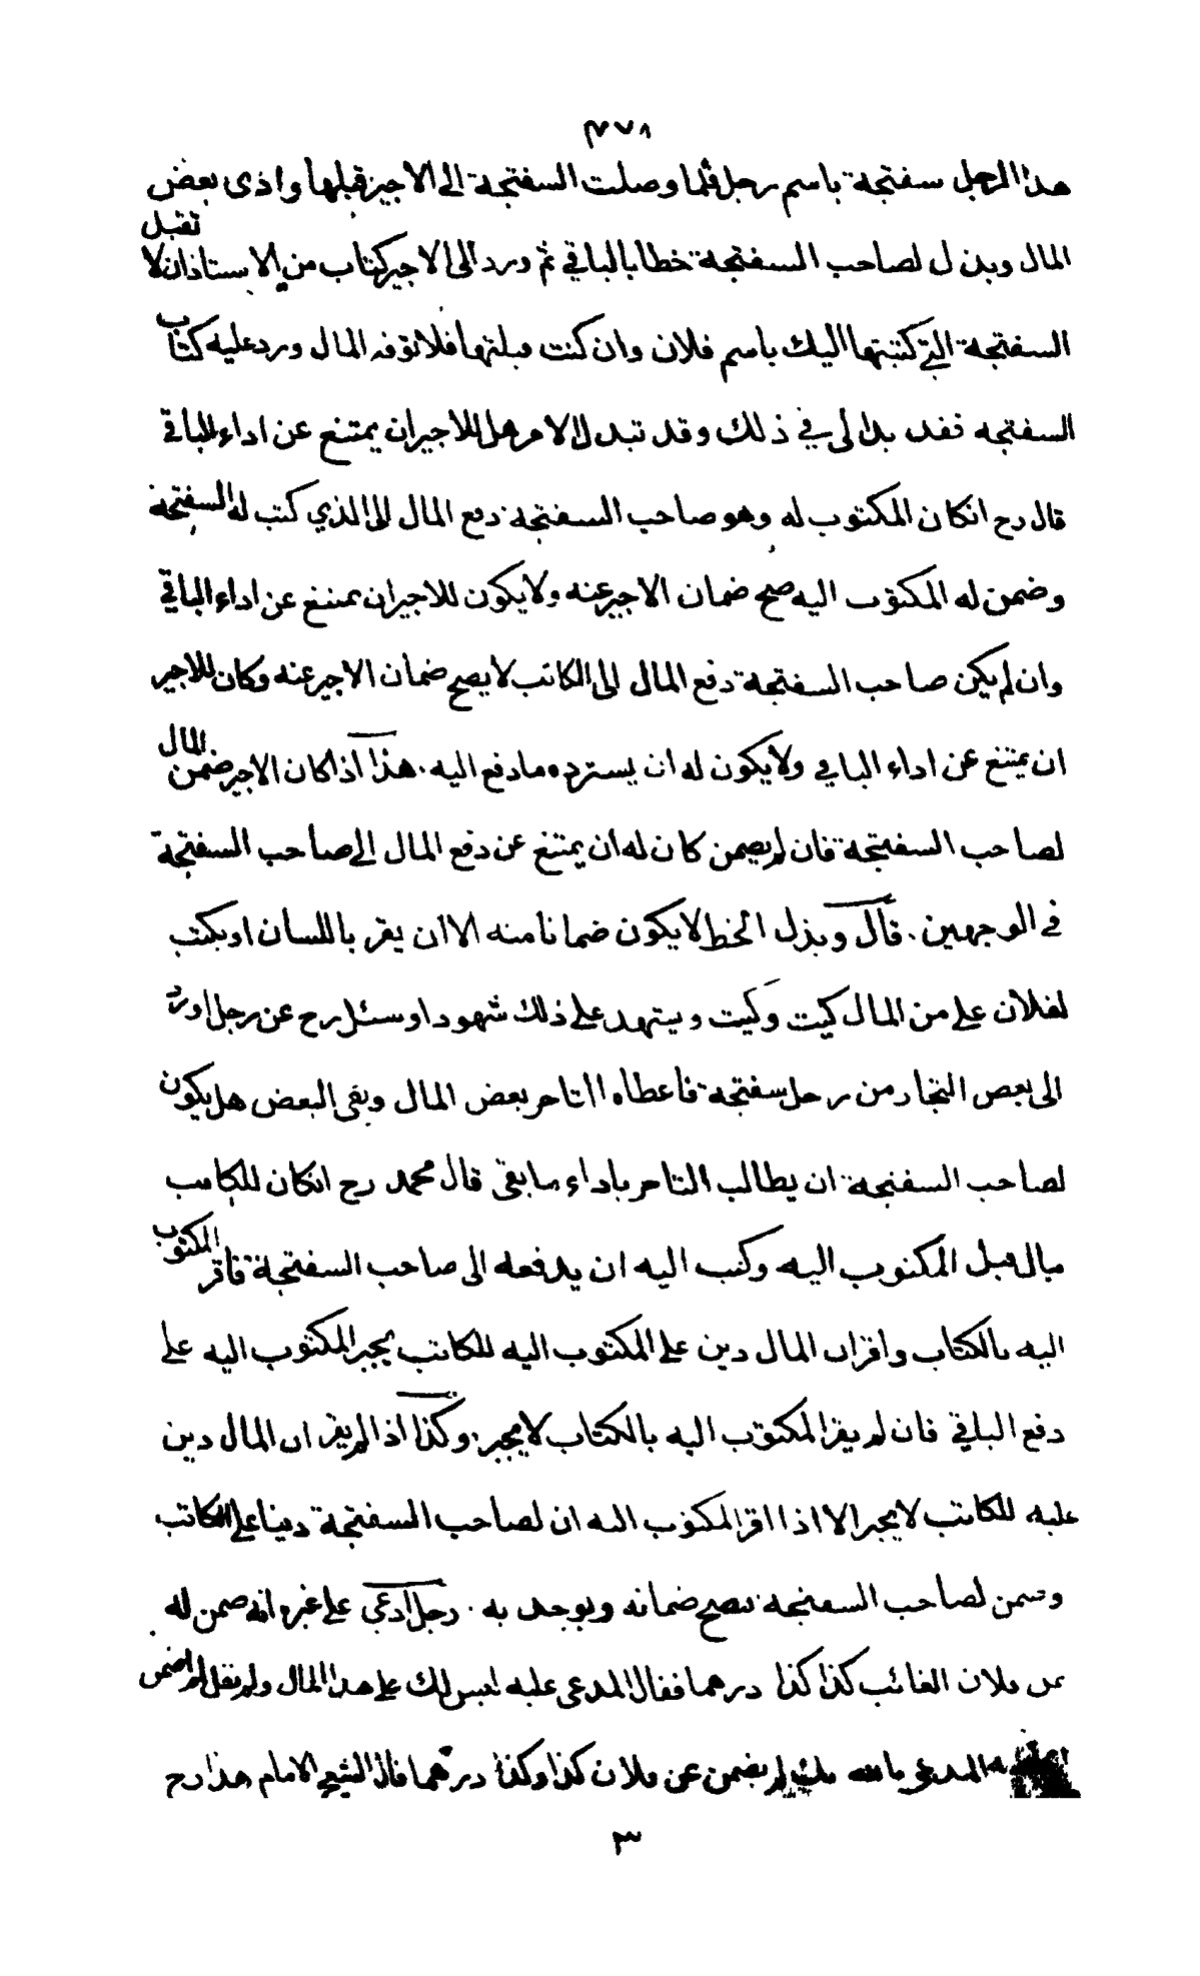 ٣٧٨
هذا الرجل سفتجة باسم رجل فلما وصلت السفتجة الى الاجير قبلها واذى بعض
المال وبذل لصاحب السفتجة خطا بالباقي ثم ورد الى الاجير كتاب من الاستاذ ان لا تقبل
السفتجة التي كتبتها اليك باسم فلان وان كنت قبلتها فلا توفه المال ورد عليه كتاب
السفتجه فقد بدا لى في ذلك وقد تبدل الامر هل للاجير ان يمتنع عن اداء الباقي
قال رح انكان المكتوب له وهو صاحب السفتجه دفع المال الى الذي كتب له السفتجة
وضمن له المكتوب اليه صح ضمان الاجير عنه ولا يكون للاجير ان يمتنع عن اداء الباقي
وان لم يكن صاحب السفتجة دفع المال الى الكاتب لا يصح ضمان الاجير عنه وكان للاجير
ان يمتنع عن اداء الباقي ولا يكون له ان يسترد ه ما دفع اليه . هذا اذا كان الاجير ضمن المال
لصاحب السفتجة فان لم يضمن كان له ان يمتنع عن دفع المال الى صاحب السفتجة
في الوجهين . قال وبذل الخط لا يكون ضمانا منه الا ان يقر باللسان او يكتب
لفلان علي من المال كيت وكيت ويشهد على ذلك شهودا وسئل رح عن رجل اورد
الى بعض التجار من رجل سفتجة فاعطاه التاجر بعض المال وبقى البعض هل يكون
لصاحب السفتجة ان يطالب التاجر باداء ما بقى قال محمد رح انكان للكاتب
مال قبل المكتوب اليه وكتب اليه ان يدفعه الى صاحب السفتجة فاقر المكتوب
اليه بالكتاب واقر ان المال دين على المكتوب اليه للكاتب يجبر المكتوب اليه على
دفع الباقي فان لم يقر المكتوب اليه بالكتاب لا يجبر . وكذا اذا لم يقر ان المال دين
عليه للكاتب لا يجبر الا اذا اقر المكتوب اليه ان لصاحب السفتجة دينا على الكاتب
وضمن لصاحب السفتجه فيصح ضمانه ويوخذ به . رجل ادعى على غيره انه ضمن له
عن فلان الغائب كذا كذا درهما فقال المدعى عليه ليس لك على هذا المال ولم يقل لم اضمن
المدعى بالله لم يضمن عن فلان كذا وكذا درهما قال الشيخ الامام هذا رح
٣